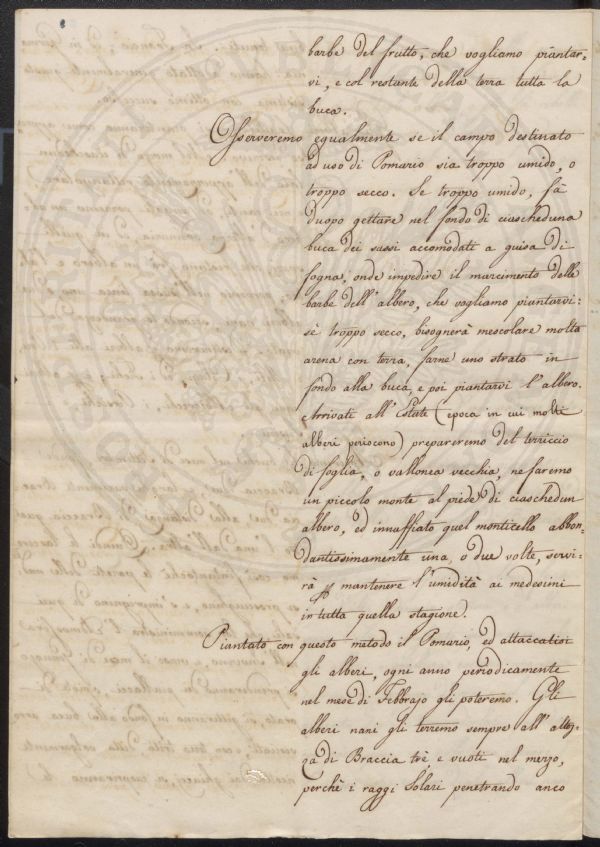 barbe del frutto, che vogliamo piantar-
vi, e col restante della terra tutta la
buca.
Osserveremo egualmente se il campo destinato
ad uso di Pomario sia troppo umido, o
troppo secco. Se troppo umido, fà
duopo gettare nel fondo di ciascheduna
buca dei sassi accomodati a guisa di
fogna, onde impedire il marcimento delle
barbe dell'albero, che vogliamo piantarvi:
sè troppo secco, bisognerà mescolare molta
arena con terra, farne uno strato in
fondo alla buca, e poi piantarvi l'albero.
Arrivati all'Estate (epoca in cui molti
alberi periscono) prepareremo del terriccio
di foglia, o vallonea vecchia, ne faremo
un piccolo monte al piede di ciaschedun
albero, ed innaffiato quel monticello abbon-
dantissimamente una, o due volte, servi-
rà p mantenere l'umidità ai medesimi
in tutta quella stagione.
Piantato con questo metodo il Pomario, ed attaccatisi
gli alberi, ogni anno periodicamente
nel mese di Febbrajo gli poteremo. Gli
alberi nani gli terremo sempre all'altez-
za di Braccia trè e vuoti nel mezzo,
perchè i raggi Solari penetrando anco